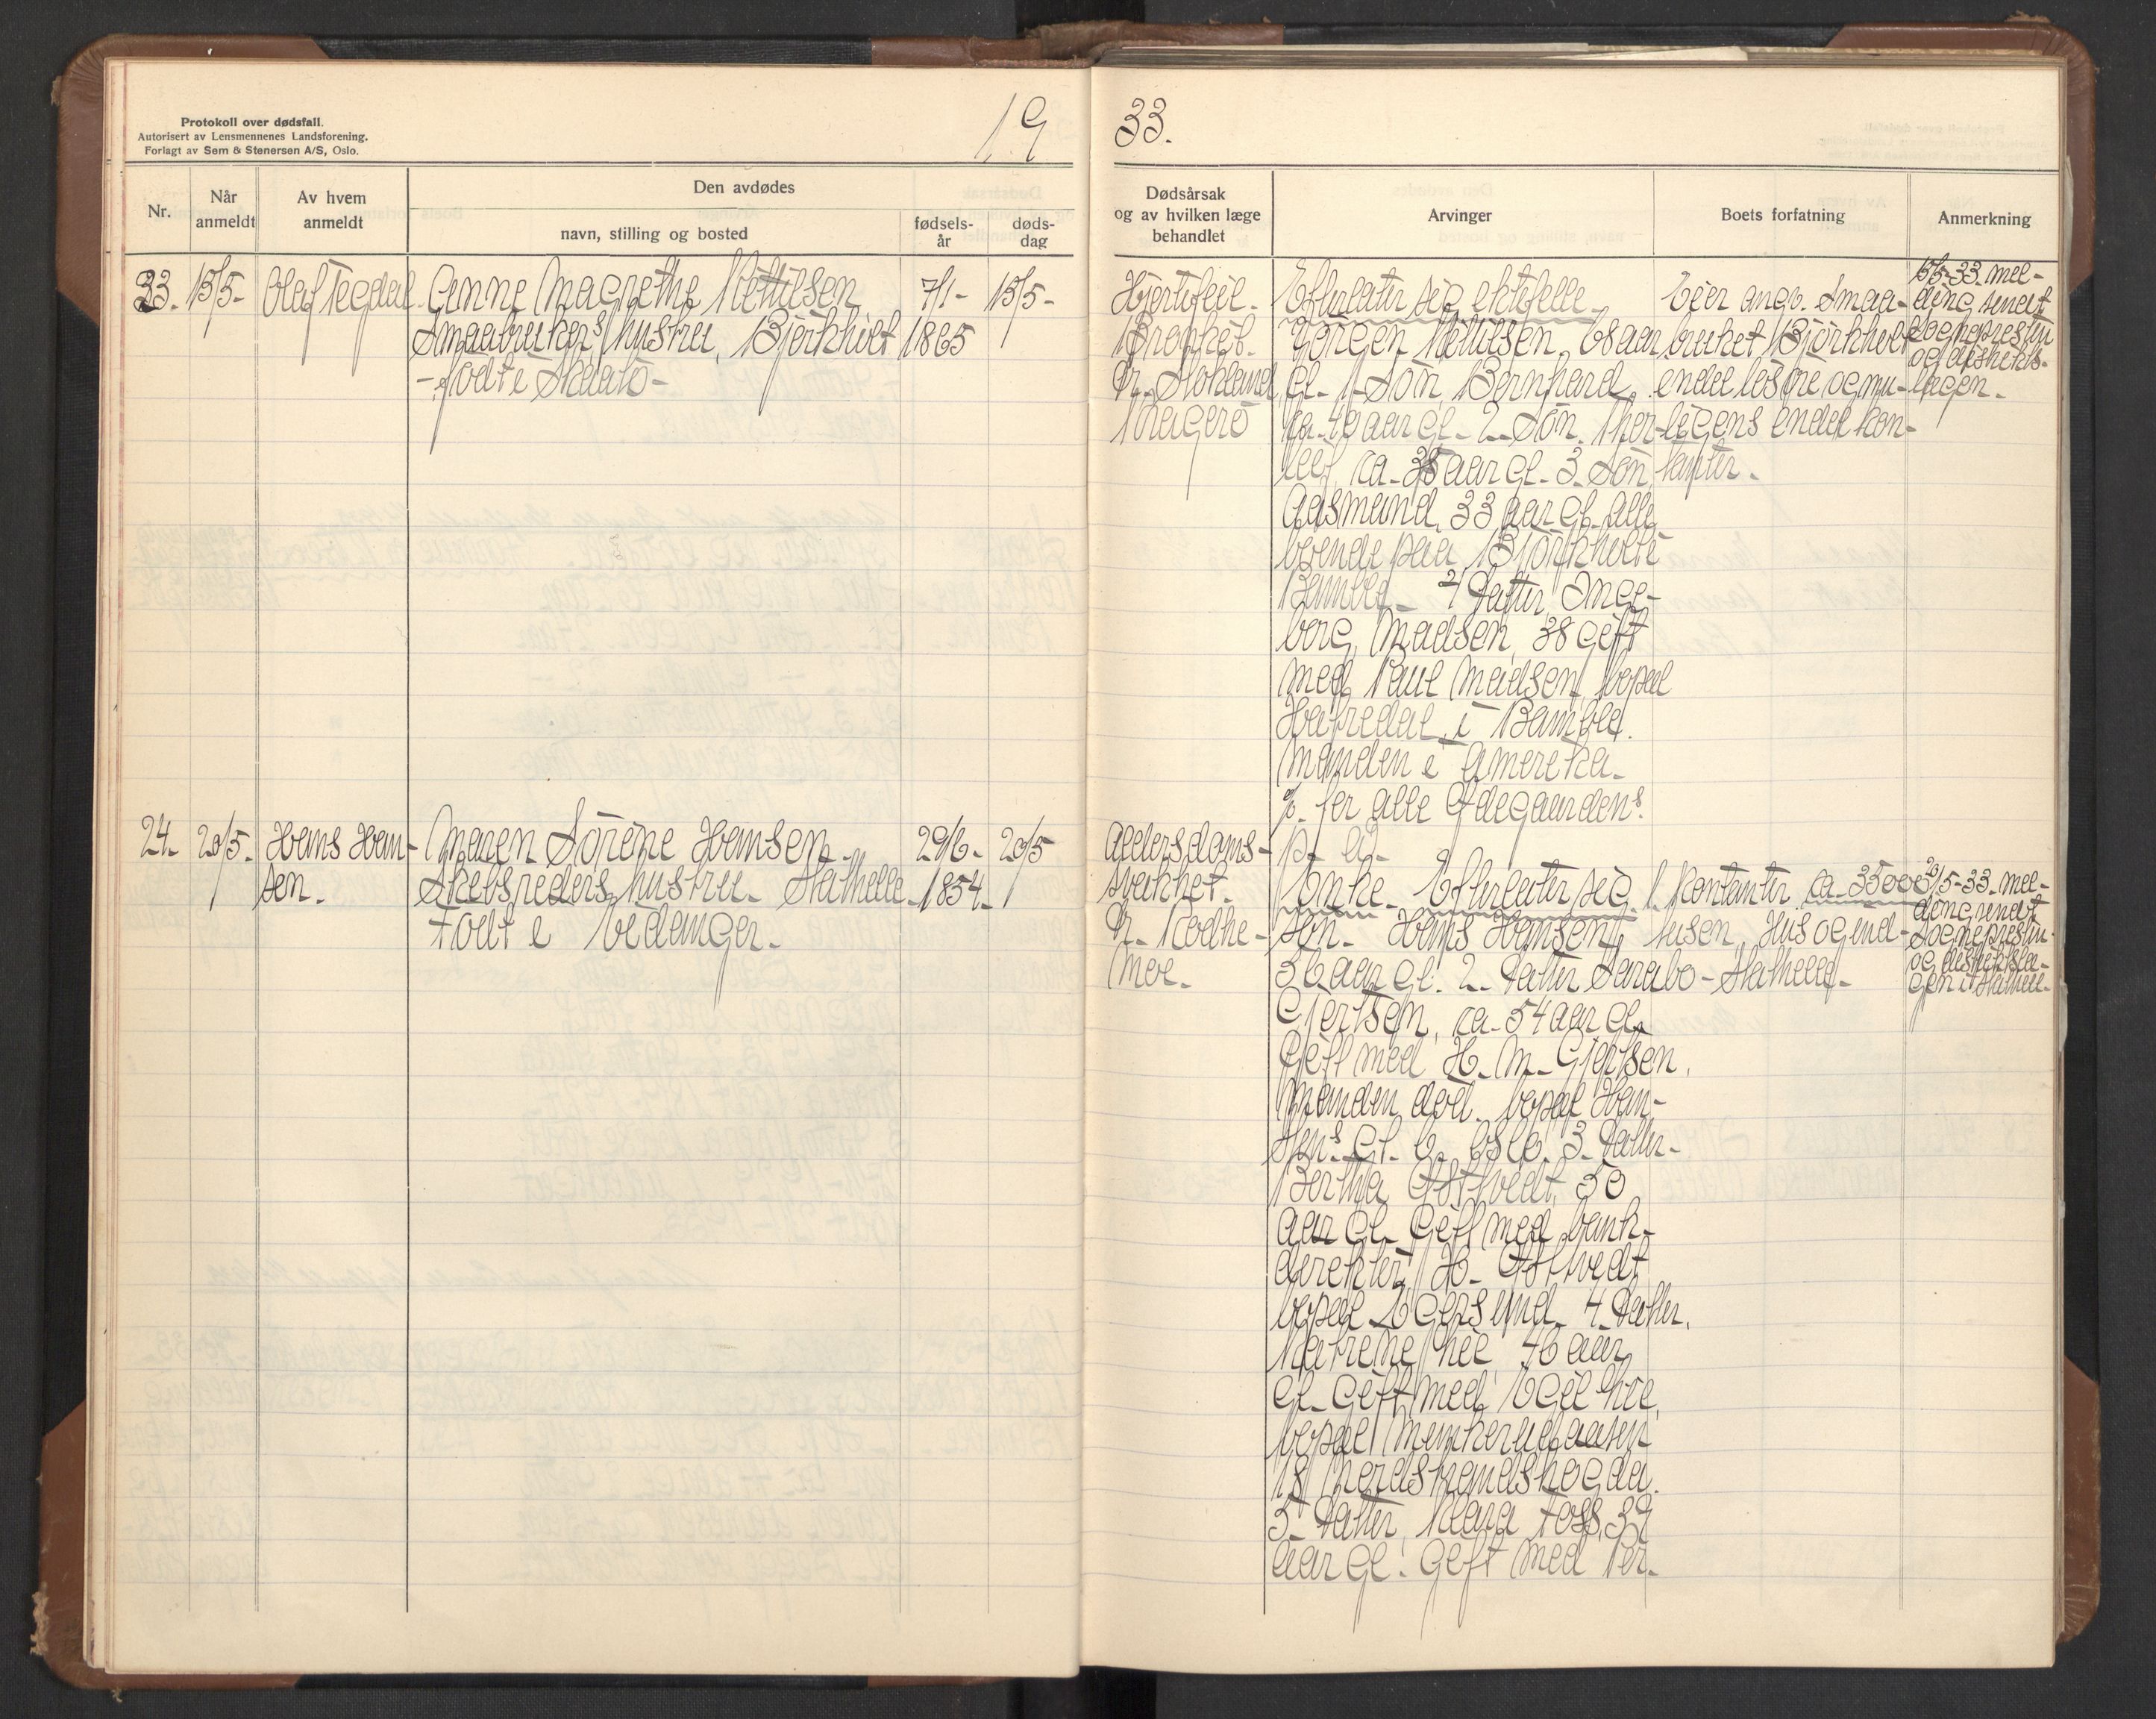 Protokoll over dødsfall.
Autorisert av Lensmennenes Landsforening.
Forlagt av Sem & Stenersen A/S, Oslo.
19
33.
Nr.
Når anmeldt
Av hvem anmeldt
Den avdødes
navn, stilling og bosted
fødsels-år
døds-dag
Dødsårsak
og av hvilken læge
behandlet
Arvinger
Boets forfatning
Anmerkning
23. 15/5- Olaf Tegdal
Anne Magrethe Kittilsen
Smaabrukers hustru, Bjørkholt
- født i Skaatø-
7/1-
1865
15/5-
Hjertefeil-
Bronkit-
Dr. Stokland
Kragerø
Efterlater sig ektefelle-
Jørgen Kittilsen, 68 aar
gl- 1- Søn Bernhard,
ca. 40 aar gl- 2- Søn. Thor-
leif, ca- 38 aar gl- 3. Søn
Aasmund, 33 aar gl- alle
boende paa Bjørkholt
Bamble- 4 Datter Inge-
borg Madsen, 38 gift
med Paul Madsen, bopæl
Hafredal, i Bamble.
Manden i Amerika-
% for alle Ødegaardens
p- a.
Eier angv. Smaa-
bruket Bjørkholt
endel løsøre og mu-
ligens endel kon-
tanter-
15/5-33. mel-
ding sendt
Sogneprestin
og distrikts-
lægen-
24. 20/5- Hans Han-
sen-
Maren Sørine Hansen-
Skibsreders hustru- Stathelle
Født i Eidanger-
29/6-
1854-
20/5
Alderdoms-
svakhet-
Dr. Rodhe-
Moe-
Enke- Efterlater sig 1.
Søn- Hans Hansen,
56 aar gl. 2- Datter Sara
Gjertsen, ca- 54 aar gl.
Gift med H- M- Gjertsen,
Manden død. bopæl Han-
Gt. 6. Oslo. 3. Datter-
Bertha Østtvedt, 50
aar gl- Gift med bank-
direktør H- Østtvedt
bopæl Egersund- 4- Datter.
Katrine Nie 46 aar
gl- Gift med Egil Nie,
bopæl Munkerudaasen
18 Nordstrandshøgda.
5- Datter, Klara Foss, 39
aar gl. Gift med Per-
Kontanter ca- 35000
tusen, Hus og end-
bo- Stathelle-
20/5-33- mel-
ding sendt
Sogneprestin-
og distriktslæ-
gen i Stathell-